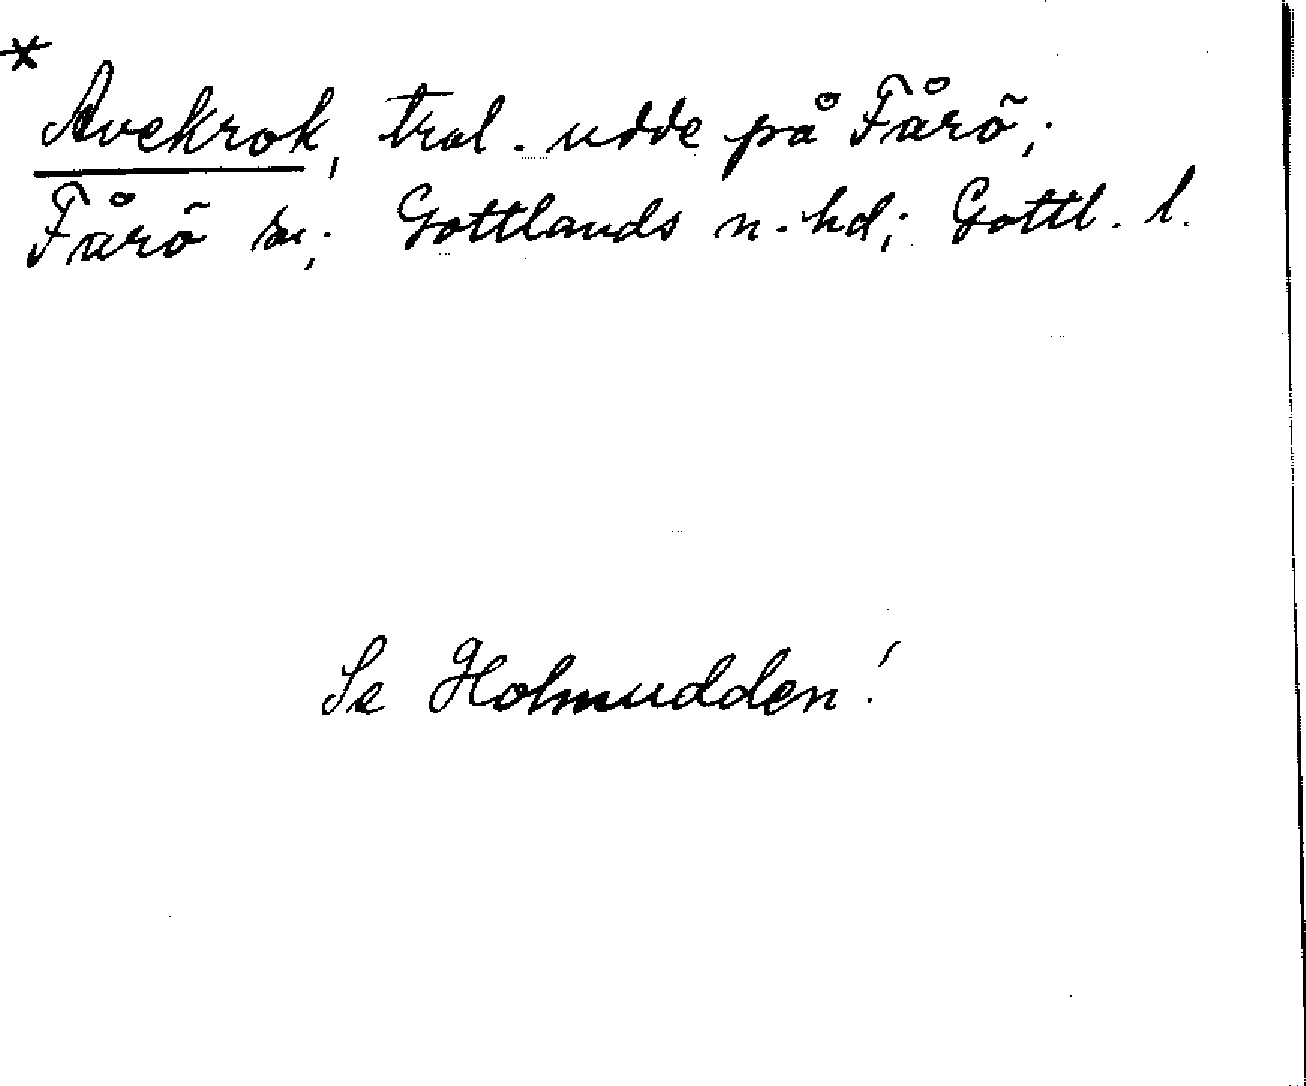 * Avekrok, trol. udde på Fårö;
Fårö sn; Gottlands n. hd; Gottl. l.
Se Holmudden!